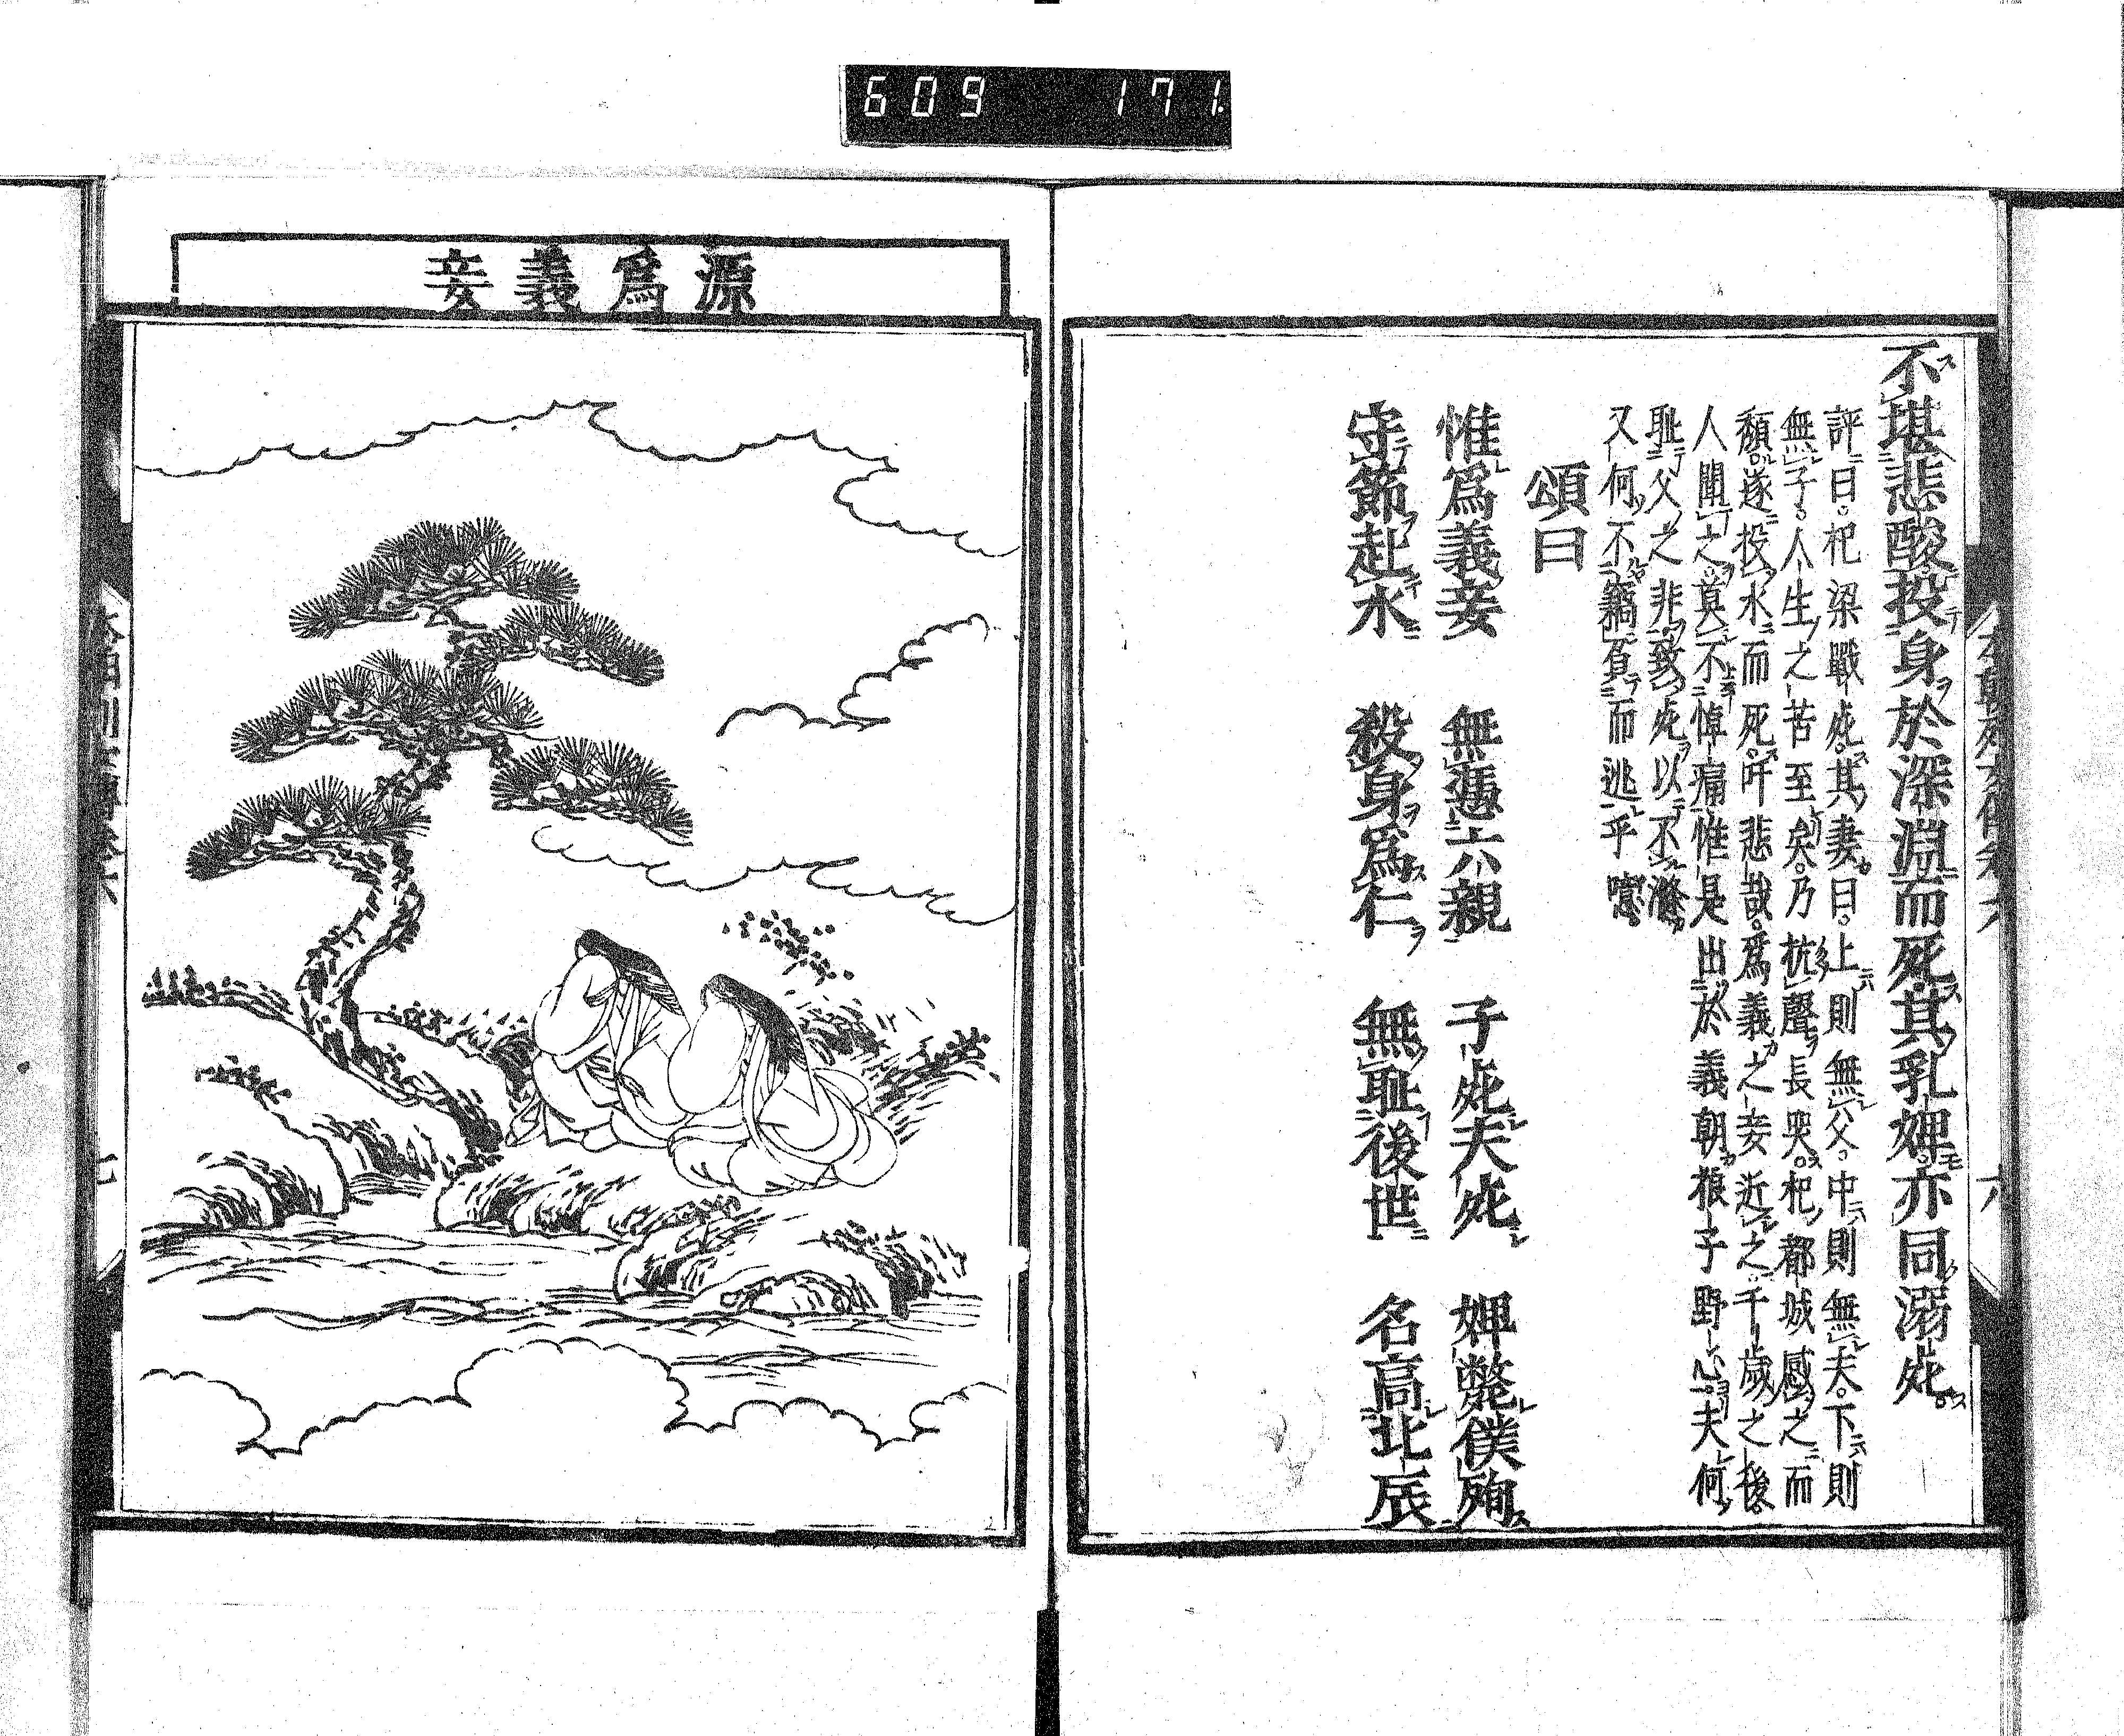 609 171
不堪悲酸投身於深淵而死其乳婢亦同溺死
評曰杞梁戰死其妻曰上則無父中則無夫下則
無子人生之苦至矣乃抗聲長哭杞都城感之而
頽遂投水而死吁悲哉爲義之妾近之千歲之後
人聞之莫不悼痛惟是出於義朝狼子野心夫何
耻父之非致死以不滌
又何不竊負而逃乎噫
頌曰
惟爲義妾 無憑六親 子死夫死 婢斃僕殉
守節赴水 殺身爲仁 無耻後世 名高北辰
六
源爲義妾
七